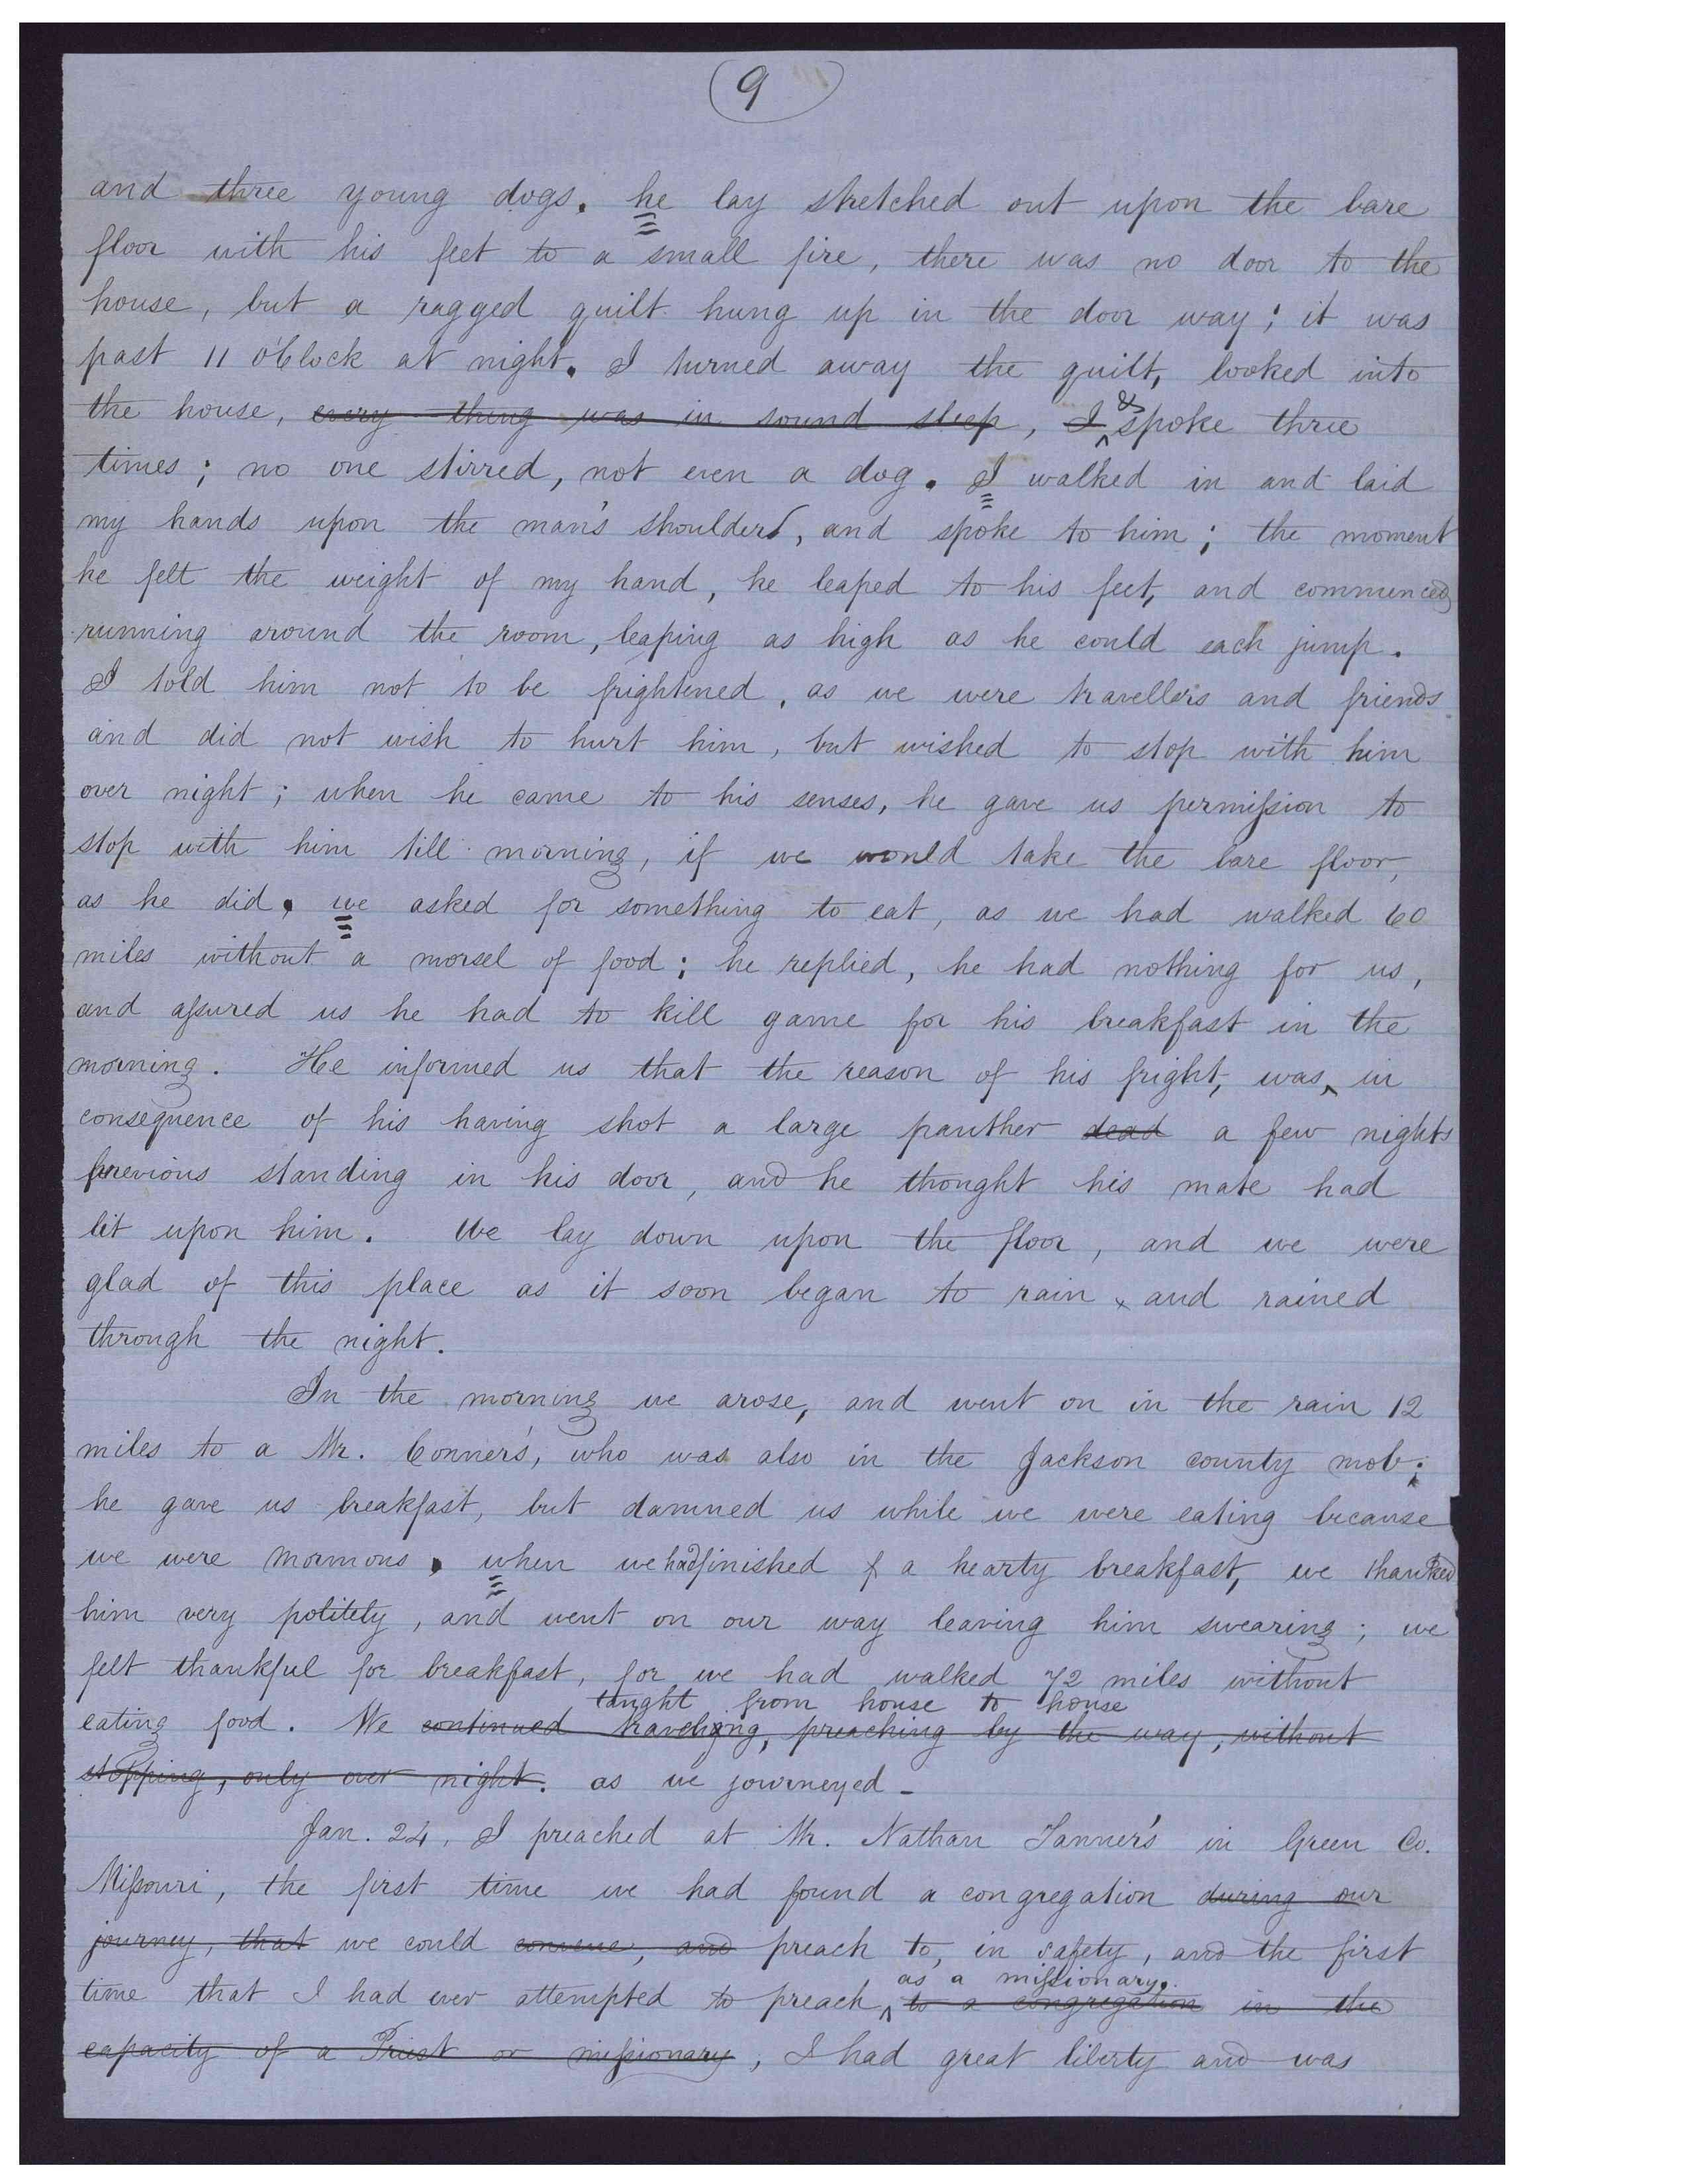 9
and three young dogs. he lay stretched out upon the bare
floor with his feet to a small fire, there was no door to the
house, but a ragged quilt hung up in the door way; it was
past 11 o'Clock at night. I turned away the quilt, looked into
the house, every thing was in sound sleep, I & spoke three
times; no one stirred, not even a dog. I walked in and laid
my hands upon the man's shoulders, and spoke to him; the moment
he felt the weight of my hand, he leaped to his feet, and commenced
running around the room, leaping as high as he could each jump.
I told him not to be frightened, as we were travellers and friends
and did not wish to hurt him, but wished to stop with him
over night; when he came to his senses, he gave us permission to
stop with him till morning, if we would take the bare floor,
as he did. we asked for something to eat, as we had walked 60
miles without a morsel of food; he replied, he had nothing for us,
and assured us he had to kill game for his breakfast in the
morning. He informed us that the reason of his fright, was, in
consequence of his having shot a large panther dead a few nights
previous standing in his door, and he thought his mate had
lit upon him. We lay down upon the floor, and we were
glad of this place as it soon began to rain, and rained
through the night.
In the morning we arose, and went on in the rain 12
miles to a Mr. Conner's, who was also in the Jackson county mob;
he gave us breakfast, but damned us while we were eating because
we were Mormons. when we had finished a hearty breakfast, we thanked
him very politely, and went on our way leaving him swearing; we
felt thankful for breakfast, for we had walked 72 miles without
taught from house to house
eating food. We continued traveling, preaching by the way, without
stopping, only over night. as we journeyed -
Jan. 24, I preached at Mr. Nathan Tanner's in Green Co.
Missouri, the first time we had found a congregation during our
journey, that we could convene, and preach to, in safety, and the first
as a missionary.
time that I had ever attempted to preach, to a congregation in the
capacity of a Priest or missionary, I had great liberty and was